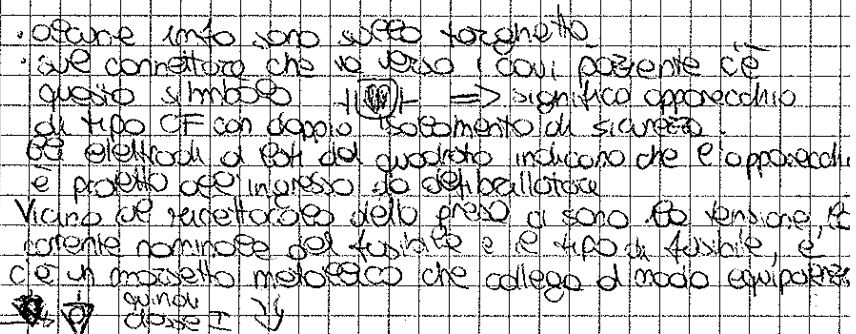 · alcune info sono sulla targhetta
· sul connettore che va verso i cavi paziente c'è
questo simbolo => significa apparecchio
di tipo CF con doppio isolamento di sicurezza.
Gli elettrodi ai lati del quadrato indicano che l'apparecchi
è protetto all'ingresso da defibrillatore
Vicino al della presa ci sono la tensione, la
corrente nominale del fusibile e il tipo di fusibile, e
c'è un morsetto metallico che collega di modo equipotenz
quindi
classe I